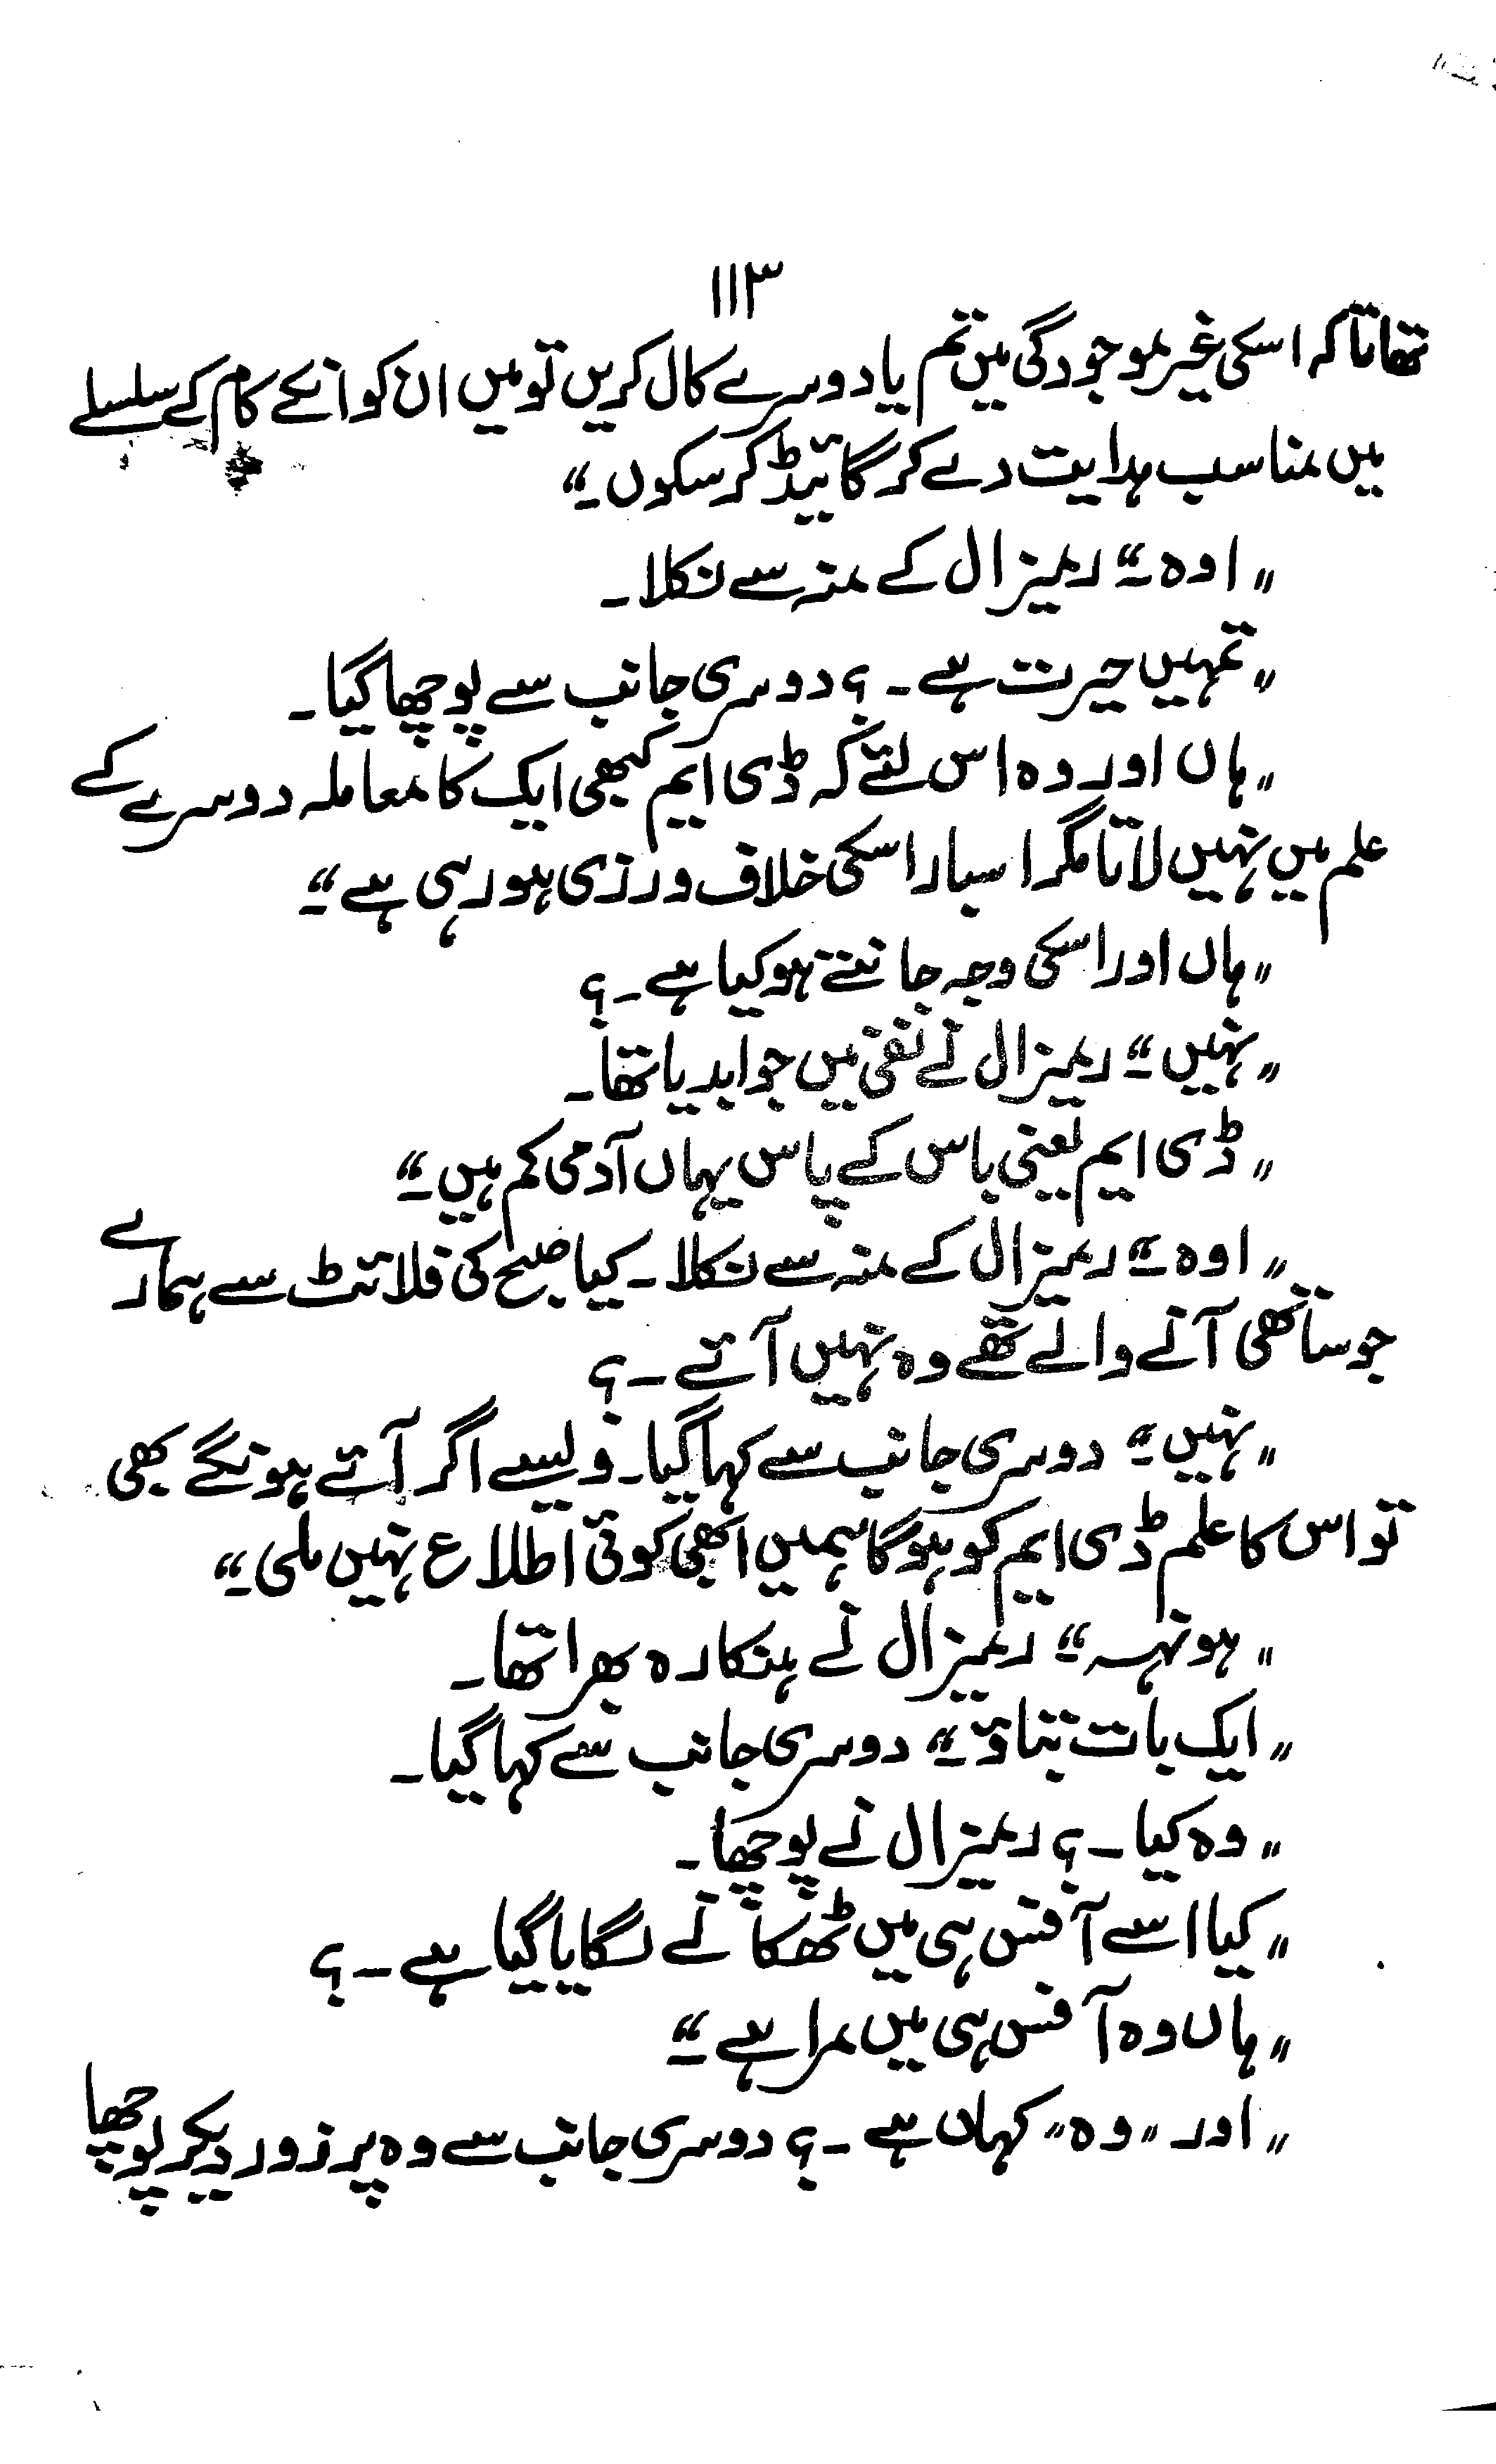 ۱۱۳
تھا تاکہ اسکی غیر موجودگی میں تم یا دوسرے کال کریں تو میں ان کو انکے کام کے سلسلے
میں مناسب ہدایت دے کر گائیڈ کر سکوں۔"
"اوہ۔" ریمزال کے منہ سے نکلا۔
"تمہیں حیرت ہے۔؟ دوسری جانب سے پوچھا گیا۔
"ہاں اور وہ اس لئے کہ ڈی ایم کبھی ایک کا معاملہ دوسرے کے
علم میں نہیں لاتا مگر اسبار اسکی خلاف ورزی ہو رہی ہے۔"
"ہاں اور اسکی وجہ جانتے ہو کیا ہے۔؟
"نہیں۔" ریمزال نے نفی میں جوابدیا تھا۔
"ڈی ایم یعنی باس کے پاس یہاں آدمی کم ہیں۔"
"اوہ۔" ریمزال کے منہ سے نکلا۔ کیا صبح کی فلائٹ سے ہمارے
جو ساتھی آنے والے تھے وہ نہیں آئے۔؟
"نہیں۔" دوسری جانب سے کہا گیا۔ ویسے اگر آئے ہونگے بھی
تو اس کا علم ڈی ایم کو ہوگا ہمیں ابھی کوئی اطلاع نہیں ملی۔"
"ہونہہ۔" ریمزال نے ہنکارہ بھرا تھا۔
"ایک بات بتاؤ۔" دوسری جانب سے کہا گیا۔
"وہ کیا۔؟ ریمزال نے پوچھا۔
"کیا اسے آفس ہی میں ٹھکانے لگایا گیا ہے۔؟
"ہاں وہ آفس ہی میں مرا ہے۔"
"اور "وہ" کہاں ہے۔؟ دوسری جانب سے وہ پر زور دیکر پوچھا